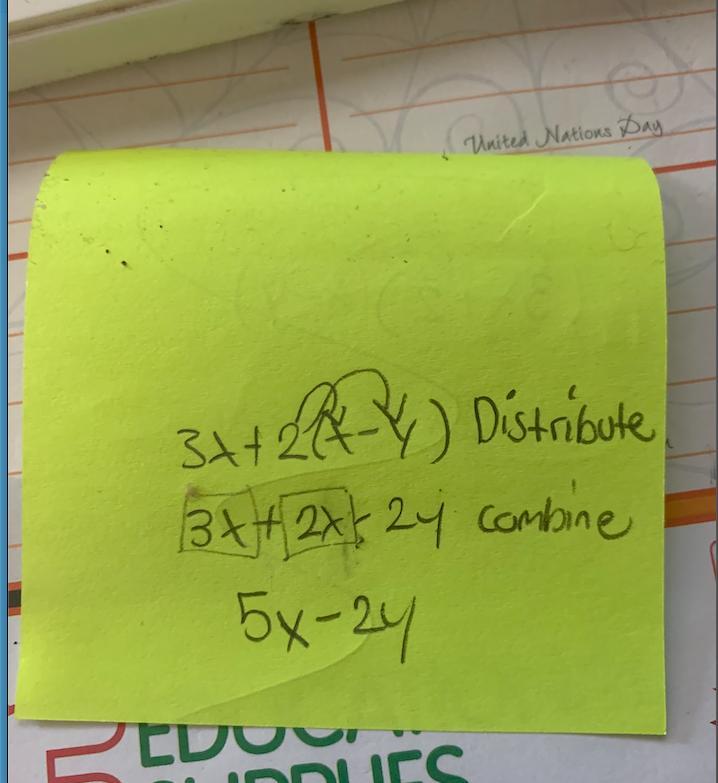 United Nations Day
3x+2(x-y) Distribute
3x+2x-2y combine
5x-2y